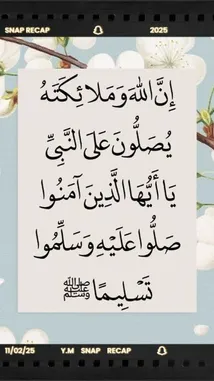 SNAP RECAP 2025
إِنَّ اللَّهَ وَمَلَائِكَتَهُ
يُصَلُّونَ عَلَى النَّبِيِّ
يَا أَيُّهَا الَّذِينَ آمَنُوا
صَلُّوا عَلَيْهِ وَسَلِّمُوا
تَسْلِيمًا ﷺ
11/02/25 Y.M SNAP RECAP